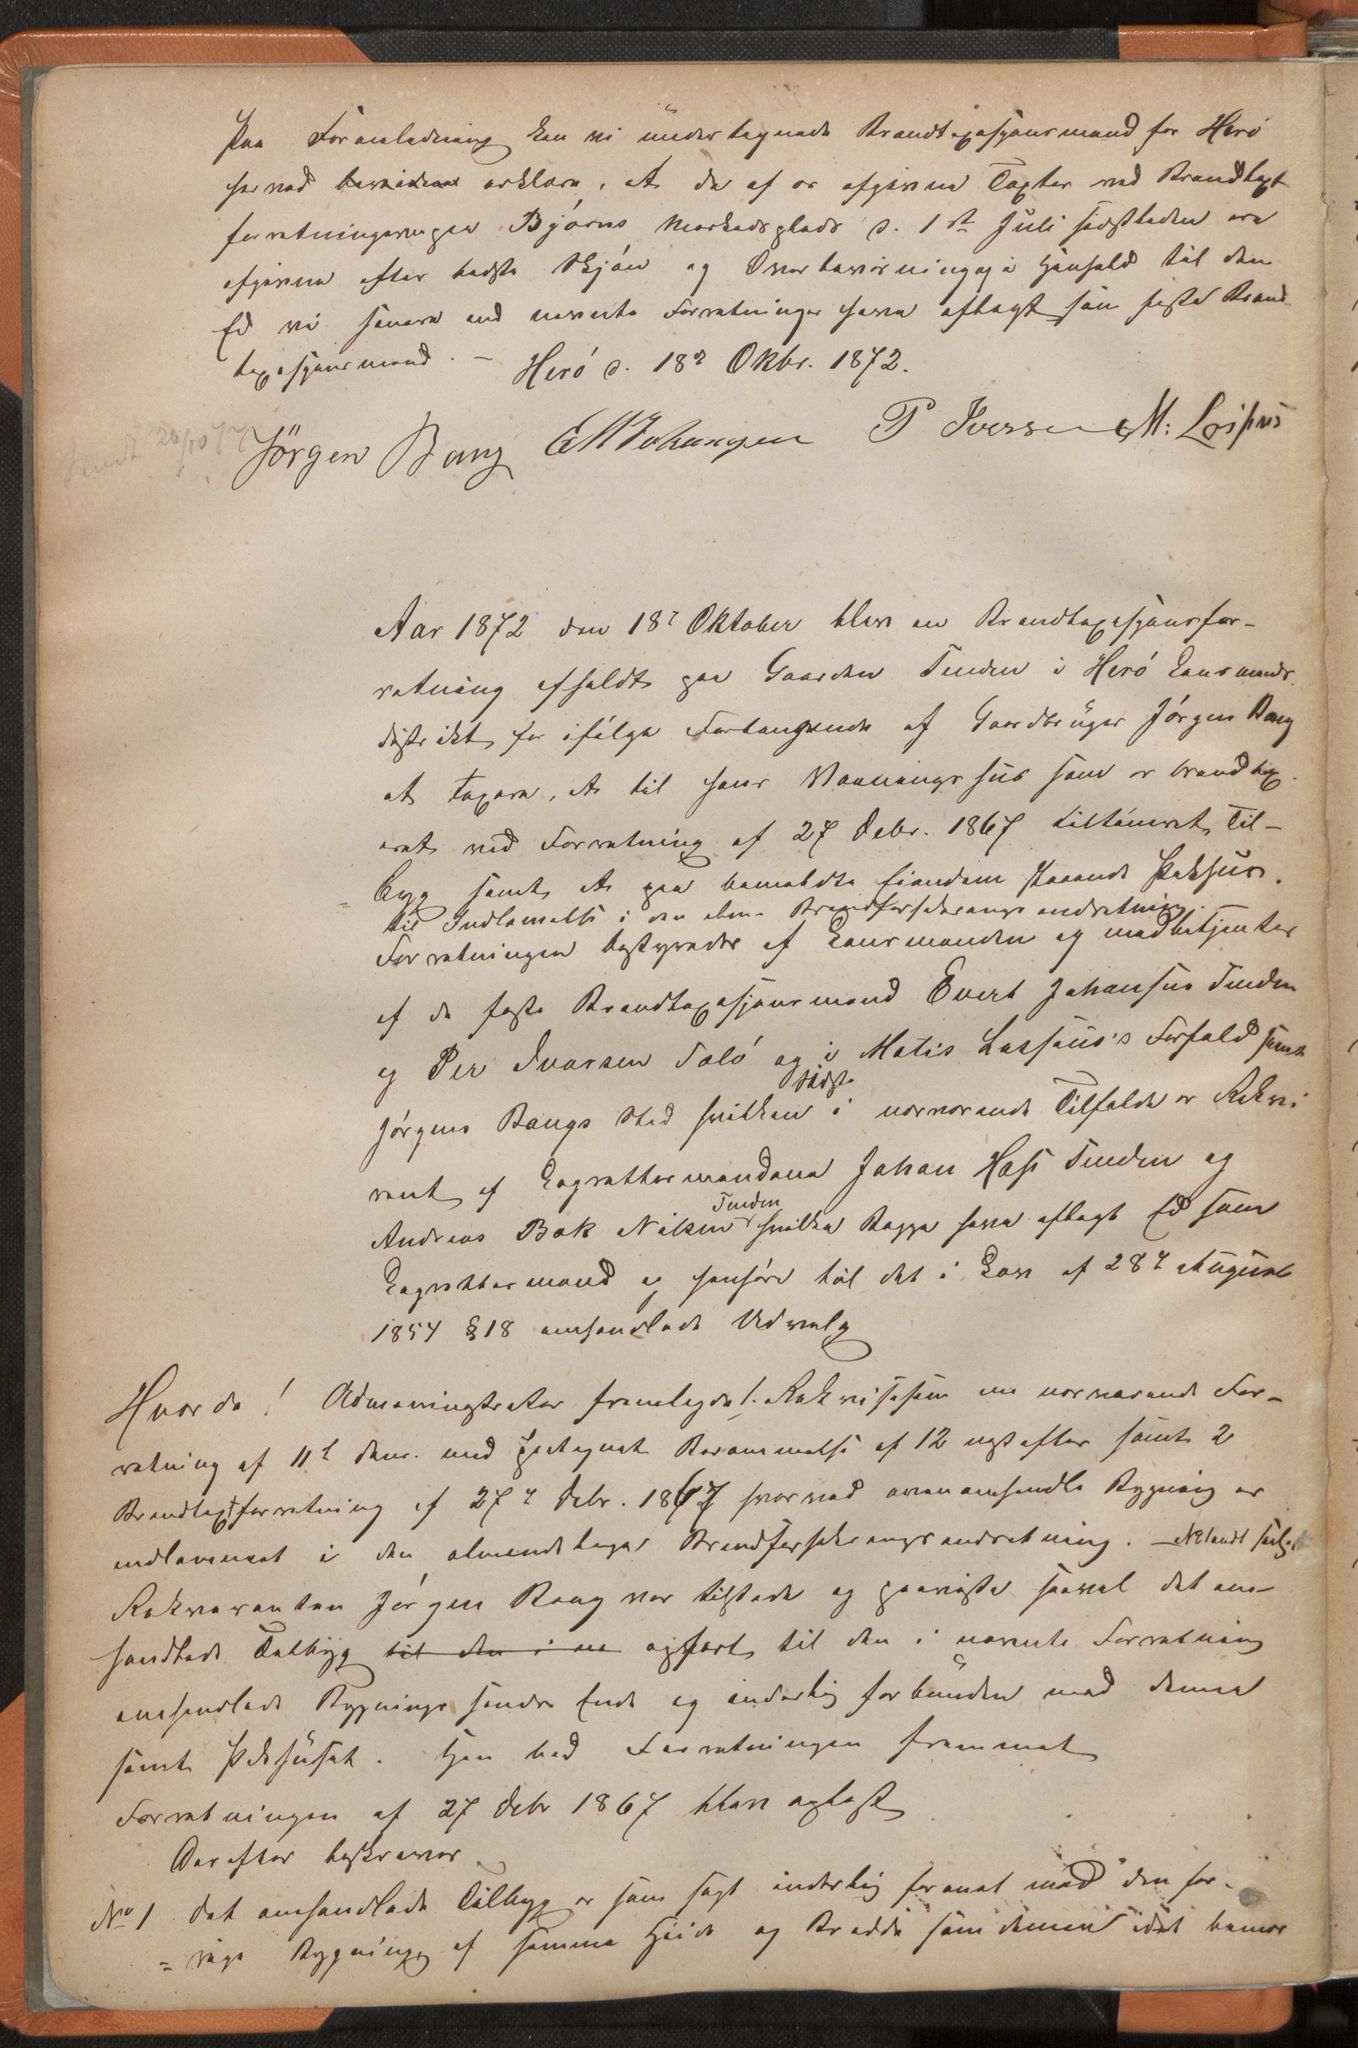 Paa Foranledning kan vi undertegnede Brandtaxasjonsmænd for Herö
herved erklære, at de af os afgivne Taxter ved Brandtaxt
forretningerne paa Björns Markedsplads d. 1ste Juli sidstleden ere
afgivne efter bedste Skjön og Overbevisning i Henhold til den
Ed vi senere end nævnte Forretninger have aflagt som faste Brand
taxasjonsmænd. – Herö d. 18de Oktbr. 1872.
Jörgen Bang E M Johansen P Iversen M: Lassesen
Aar 1872 den 18de Oktober blev en Brandtaxasjonsfor-
retning afholdt paa Gaarden Tenden i Herö Lensmands
distrikt for ifölge Forlangende af Gaardbruger Jörgen Bang
at taxere, et til hans Vaaningshus som er brandtax
eret ved Forretning af 27 Debr. 1867 tiltömret Til-
byg samt et paa bemeldte Eiendom staaende Stabhus.
til Indlemmelse i den alm. Brandforsikrings indretning
Forretningen bestyredes af Lensmanden og medbetjentes
af de faste Brandtaxasjonsmænd Evert Johansen Tenden
og Per Ivarsen Talö og i Matis Lassesens Forfald samt
Jörgen Bangs Sted hvilken sidste i nærværende Tilfælde er Rekvi
rent af Lagrettesmændene Johan Hof Tenden og
Andreas Bek Nilsen Tenden hvilke Begge have aflagt Ed som
Lagrettesmænd og henhöre til det i Lov af 28de August
1854 § 18 omhandlede Udvalg
Hvorda! Administrator fremlagde 1. Rekvisisjon om nærværende For-
retning af 11te dens. med paategnet Berammelse af 12 næstefter samt 2
Brandtaxtforretning af 27de Debr. 1867 hvorved ovenomhandlede Bygning er
indlemmet i den almindelige Brandforsikringsindretning. –
Rekvirenten Jörgen Bang var tilstede og paaviste saavel det om-
handlede Tilbyg til den i næ opfört til den i nævnte Forretning
omhandlede Bygnings söndre Ende og inderlig forbunden med denne
samt Stabhuset. Han bad Forretningen fremmet
Forretningen af 27 Debr 1867 blev oplæst
Derefter beskreves
No 1 Det omhandlede Tilbyg er som sagt inderlig forenet med den for-
rige Bygning af samme Höide og Bredde som denne idet bemær